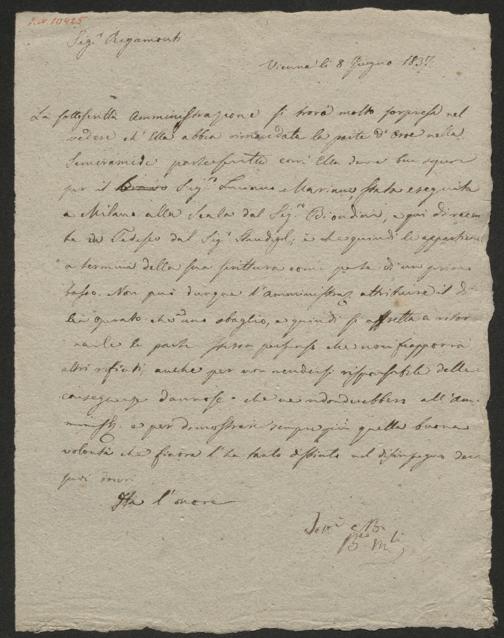 I.N. 10425
Sig.r Regamonti
Vienna li 8 Giugno 183
La sottoscritta Amministrazione si trova molto sorpresa nel
vedere ch'Ella abbia rimandata la parte d'Oroe nella
Semiramide poiché Ella deve ben sapere
per il Sig.r Luciano Mariani, stata eseguita
a Milano alla Scala dal Sig.r Biondini, e qui
in Tedesco dal Sig.r Staudigl; e che quindi le appartiene
a termini della sua scrittura come parte di un primo
basso. Non può dunque l'Amministraz. attribuire il di
Lei operato che ad uno sbaglio, e quindi si affretta a ritor
narle la parte stessa persuasa che non frapporrà
altri rifiuti, anche per non rendersi risponsabile delle
conseguenze dannose che ne ridonderebbero all'Am
ministr. e per dimostrare sempre più quella buona
volontà che finora l'ha tanto distinto nel disimpegno de
suoi doveri
Ha l'onore